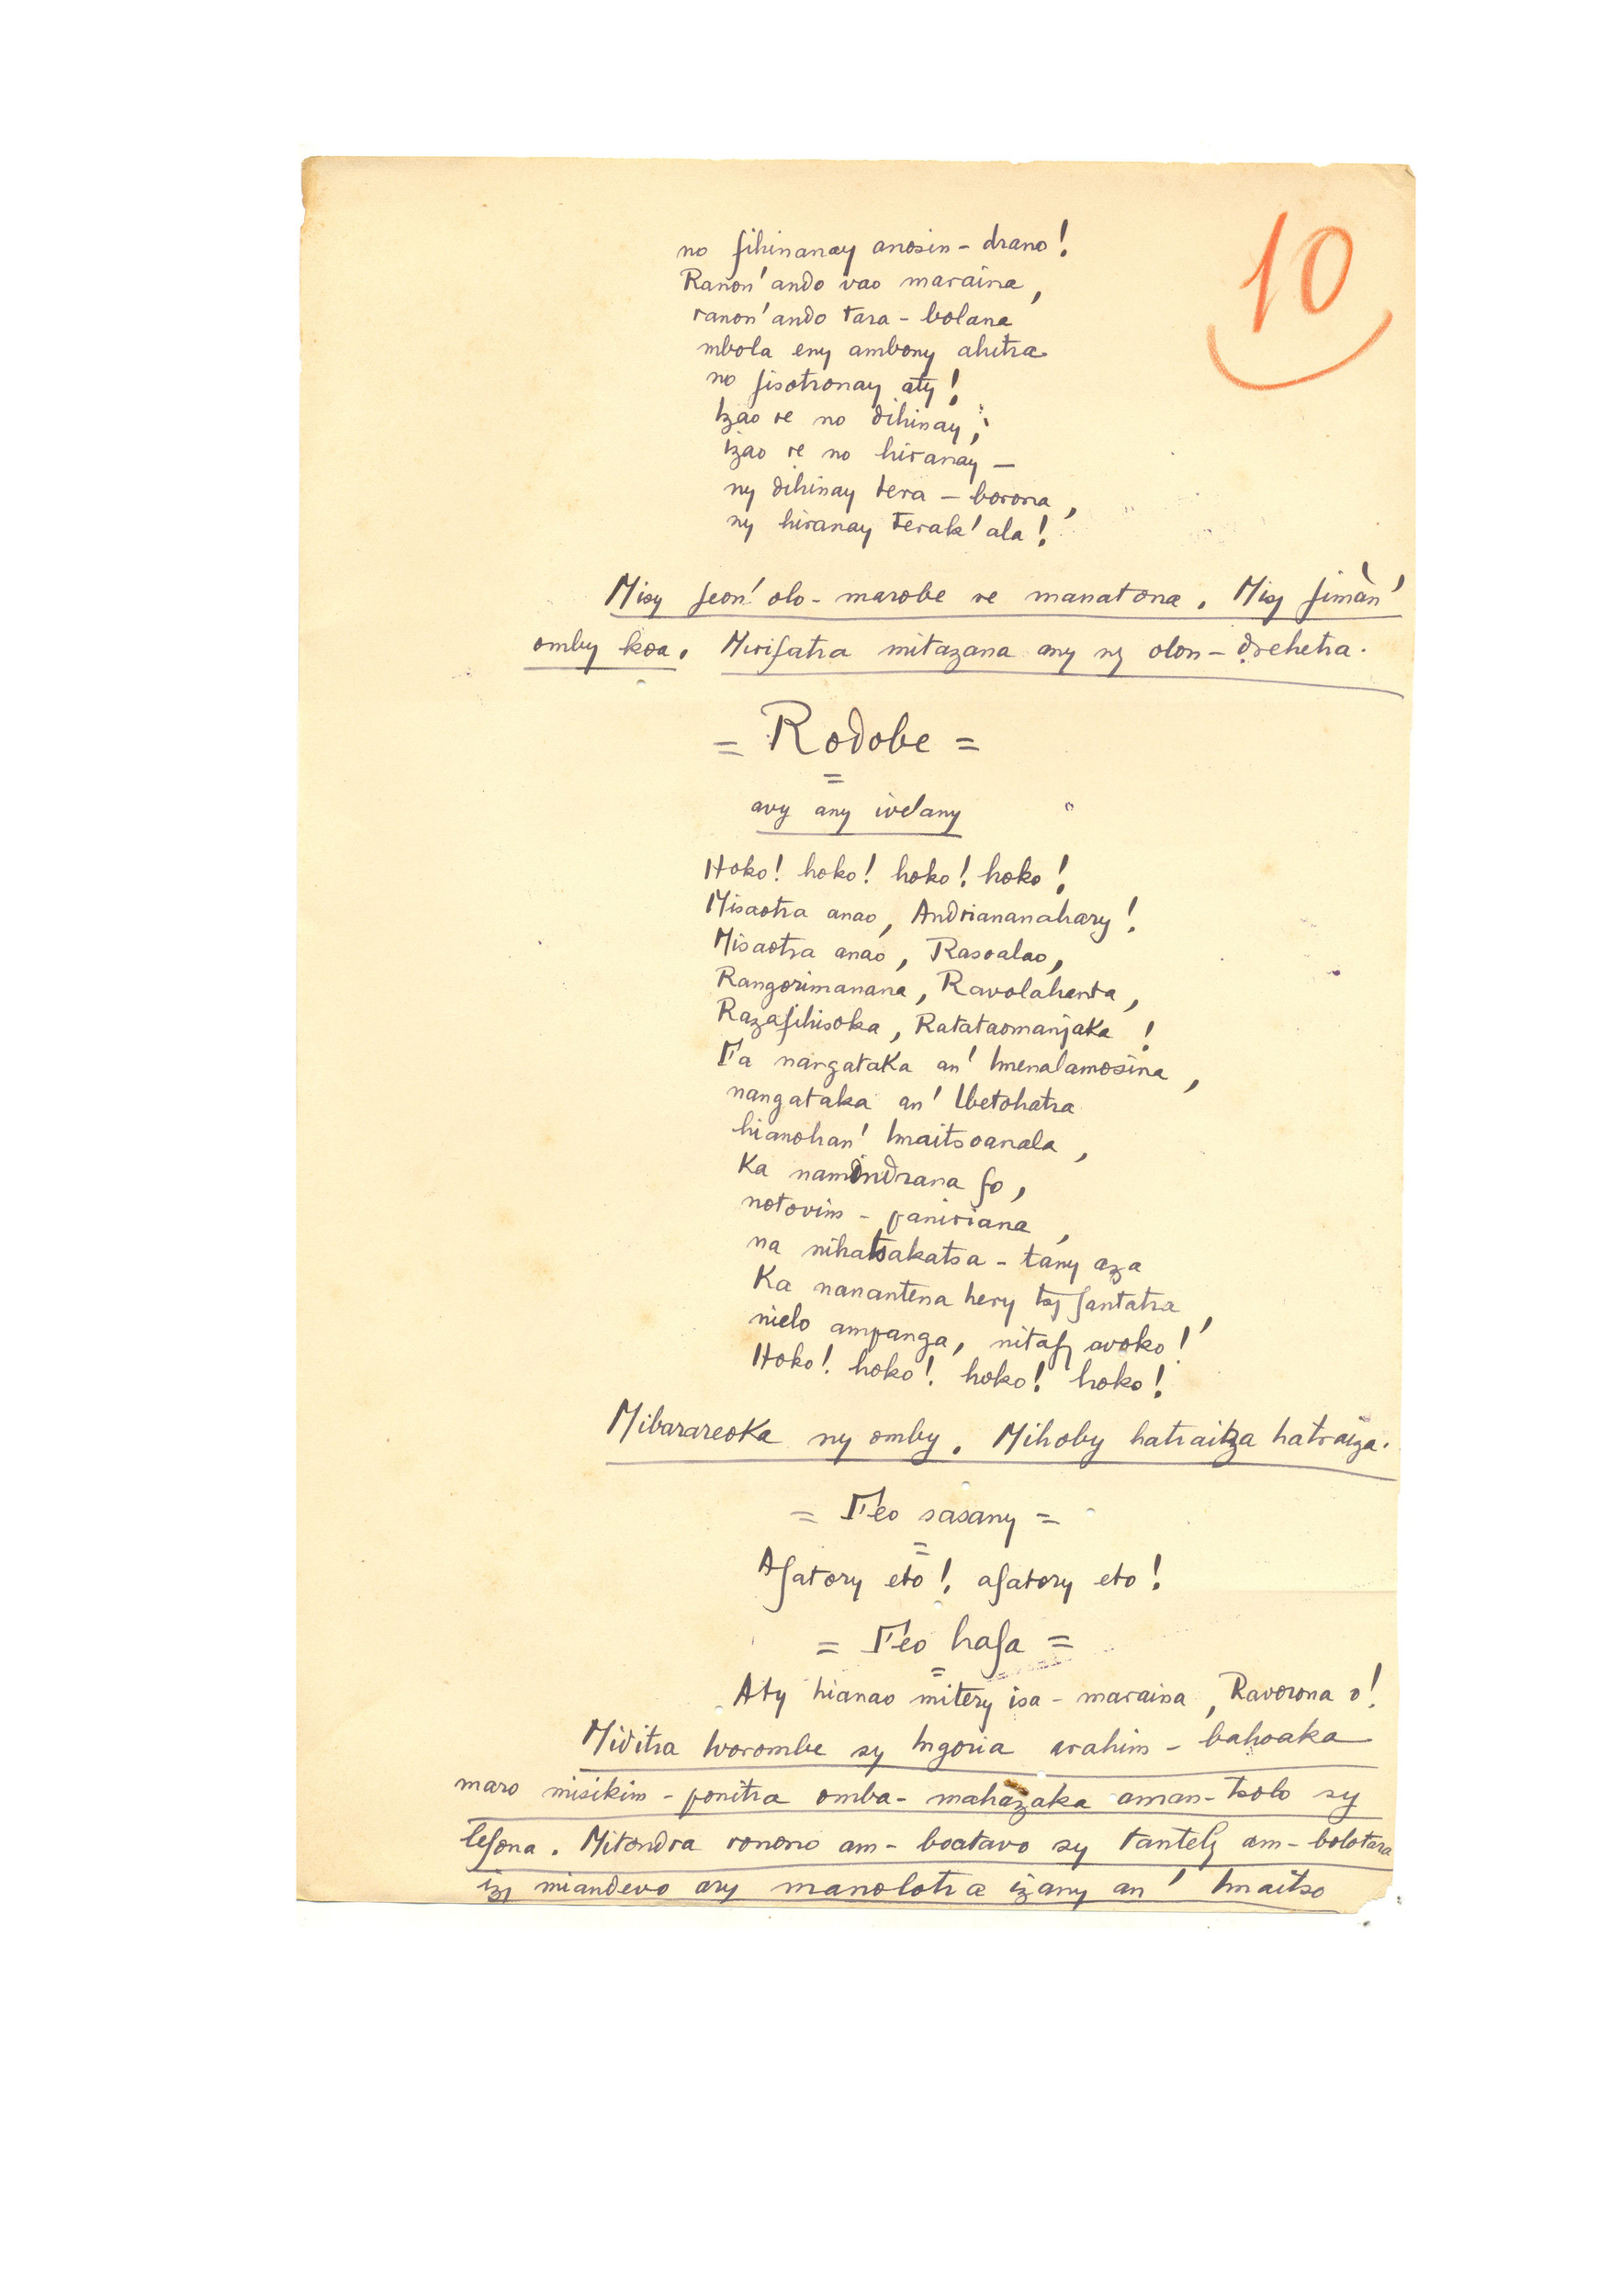 10
no fihinanay anosin-drano!
Ranon' ando vao maraina,
ranon' ando tara-bolana
mbola eny ambony ahitra
no fisotronay aty!
Izao re no dihinay;
izao re no hiranay —
ny dihinay tera-borona,
ny hiranay terak' ala!
Misy feon' olo-marobe re manatona. Misy fimàn'
omby koa. Mirifatra mitazana any ny olon-drehetra.
= Rodobe =
=
avy any ivelany
Hoko! hoko! hoko! hoko!
Misaotra anao, Andriananahary!
Misaotra anao, Rasoalao,
Rangorimanana, Ravolahanta,
Razafihisoka, Ratataomanjaka!
Fa nangataka an' Imenalamosina,
nangataka an' Ibetohatra
hianohan' Imaitsoanala,
Ka namindrana fo,
notovim-paniriana,
na nihatsakatsa-tany aza
Ka nanantena hery tsy fantatra,
nielo ampanga, nitafy avoko!
Hoko! hoko! hoko! hoko!
Mibarareoka ny omby. Mihoby hatraiza hatraiza.
= Feo sasany =
=
Afatory eto! afatory eto!
= Feo hafa =
=
Aty hianao mitery isa-maraina, Ravorona o!
Miditra Ivorombe sy Ingoria arahim-bahoaka
maro misikim-ponitra omba-mahazaka aman-tsolo sy
lefona. Mitondra ronono am-boatavo sy tantely am-bolotara
izy miandevo ary manolotra izany an' Imaitso